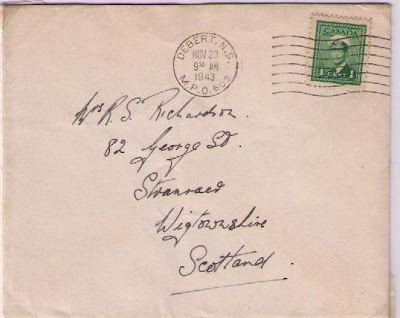 DEBERT. N.S.
NOV 23
9 30 AM
1943
M.P.O. 603
CANADA
1 CENT 1
Mrs R. S. Richardson.
82 George St.
Stranraer
Wigtownshire
Scotland.